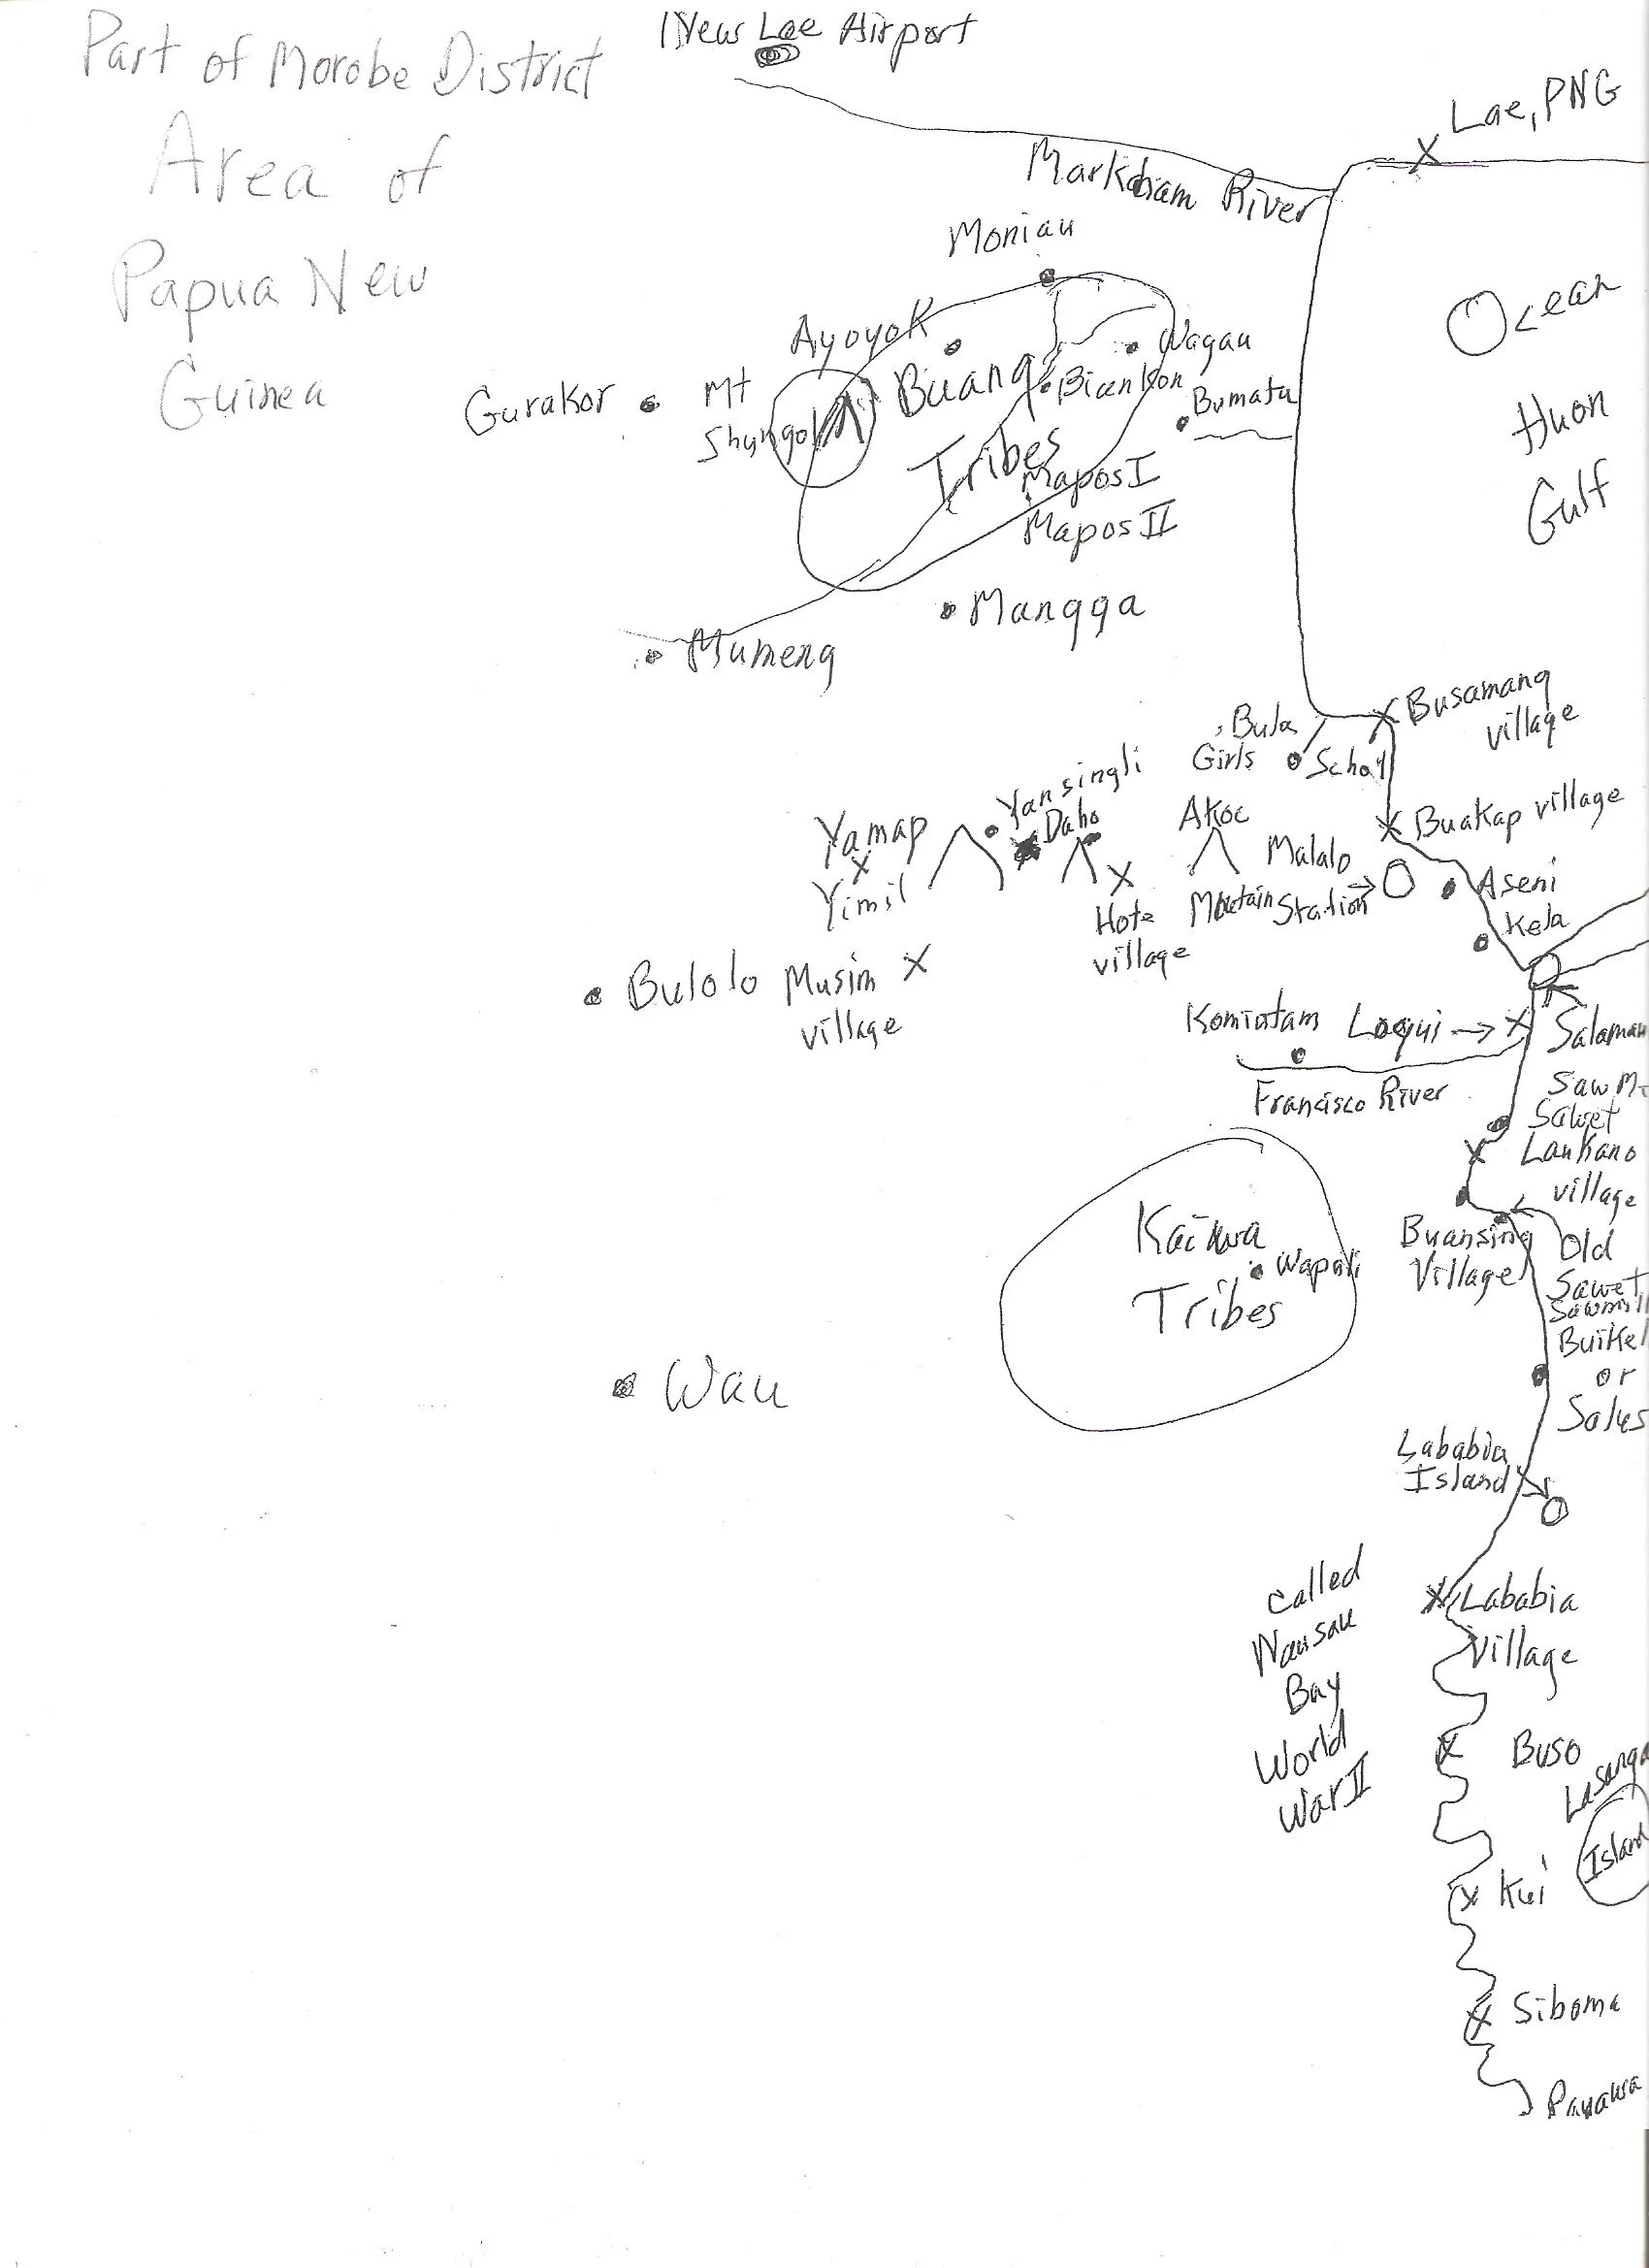 Part of Morobe District
Area of
Papua New
Guinea
New Lae Airport
Lae, PNG
Markham River
Ocean
Huon
Gulf
Moniau
Ayoyok
Wagau
Buang
Biankon
Tribes
Bumata
Gurakor
Mt
Shungol
Mapos I
Mapos II
Mangga
Mumeng
Busamang
village
Bula
Girls School
Buakap village
Yansingli
Daho
Yamap
Yimil
Akoc
Mountain
Malalo
Station
Aseni
Kela
Hote
village
Bulolo
Musim
village
Komiatam
Loqui
Salamau
Francisco River
Saw M
Sawet
Lankano
village
Kaiwa
Tribes
Wapali
Buansing
Village
Old
Sawet
Sawmill
Buikel
or
Solus
Wau
Lababia
Island
Lababia
Village
called
Nausau
Bay
World
War II
Buso
Lasanga
Island
Kui
Siboma
Paiawa